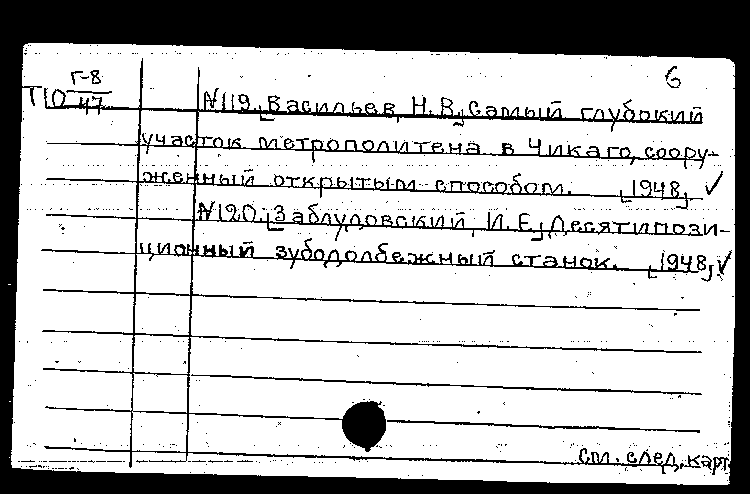 6
Г-8
Т10 47
№119. [Васильев, Н. В.] Самый глубокий
участок метрополитена в Чикаго, соору-
женный открытым способом. [1948] ✓
№120. [Заблудовский, И. Е.] Десятипози-
ционный зубодолбежный станок. [1948] ✓
См. след. карт